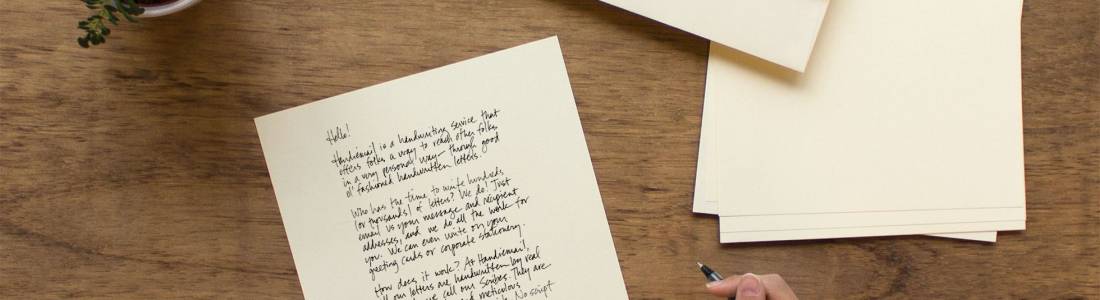 Hello!
Handiemail is a handwriting service that
offers folks a way to reach other folks
in a very personal way - through good
ol' fashioned handwritten letters.
Who has the time to write hundreds
(or thousands) of letters? We do! Just
email us your message and recipient
addresses, and we do all the work for
you. We can even write on your
greeting cards or corporate stationery.
How does it work? At Handiemail,
all our letters are handwritten by real
we call our Scribes. They are
and meticulous
No script